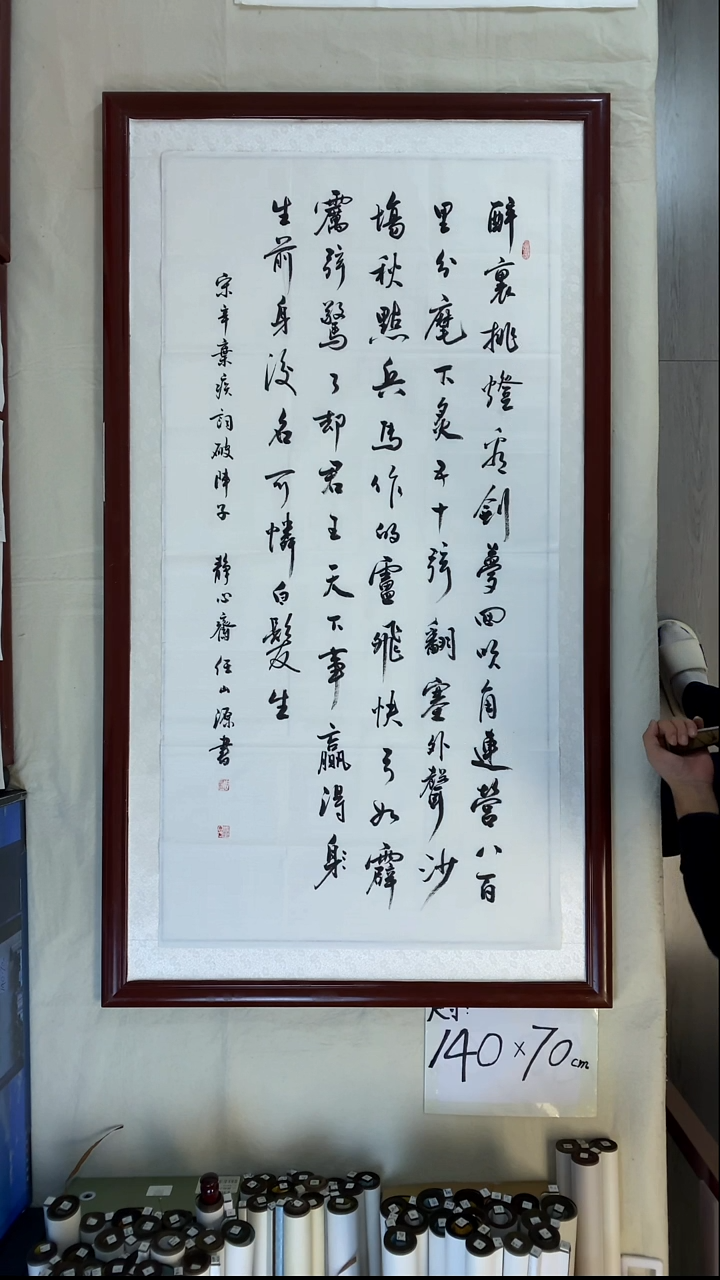 醉裏挑燈看劍夢回吹角連營八百
里分麾下炙五十弦翻塞外聲沙
塲秋點兵馬作的盧飛快弓如霹
靂弦驚了却君王天下事贏得身
生前身後名可憐白髮生
宋辛棄疾詞破陣子 靜心齋任山源書
尺寸:
140×70cm